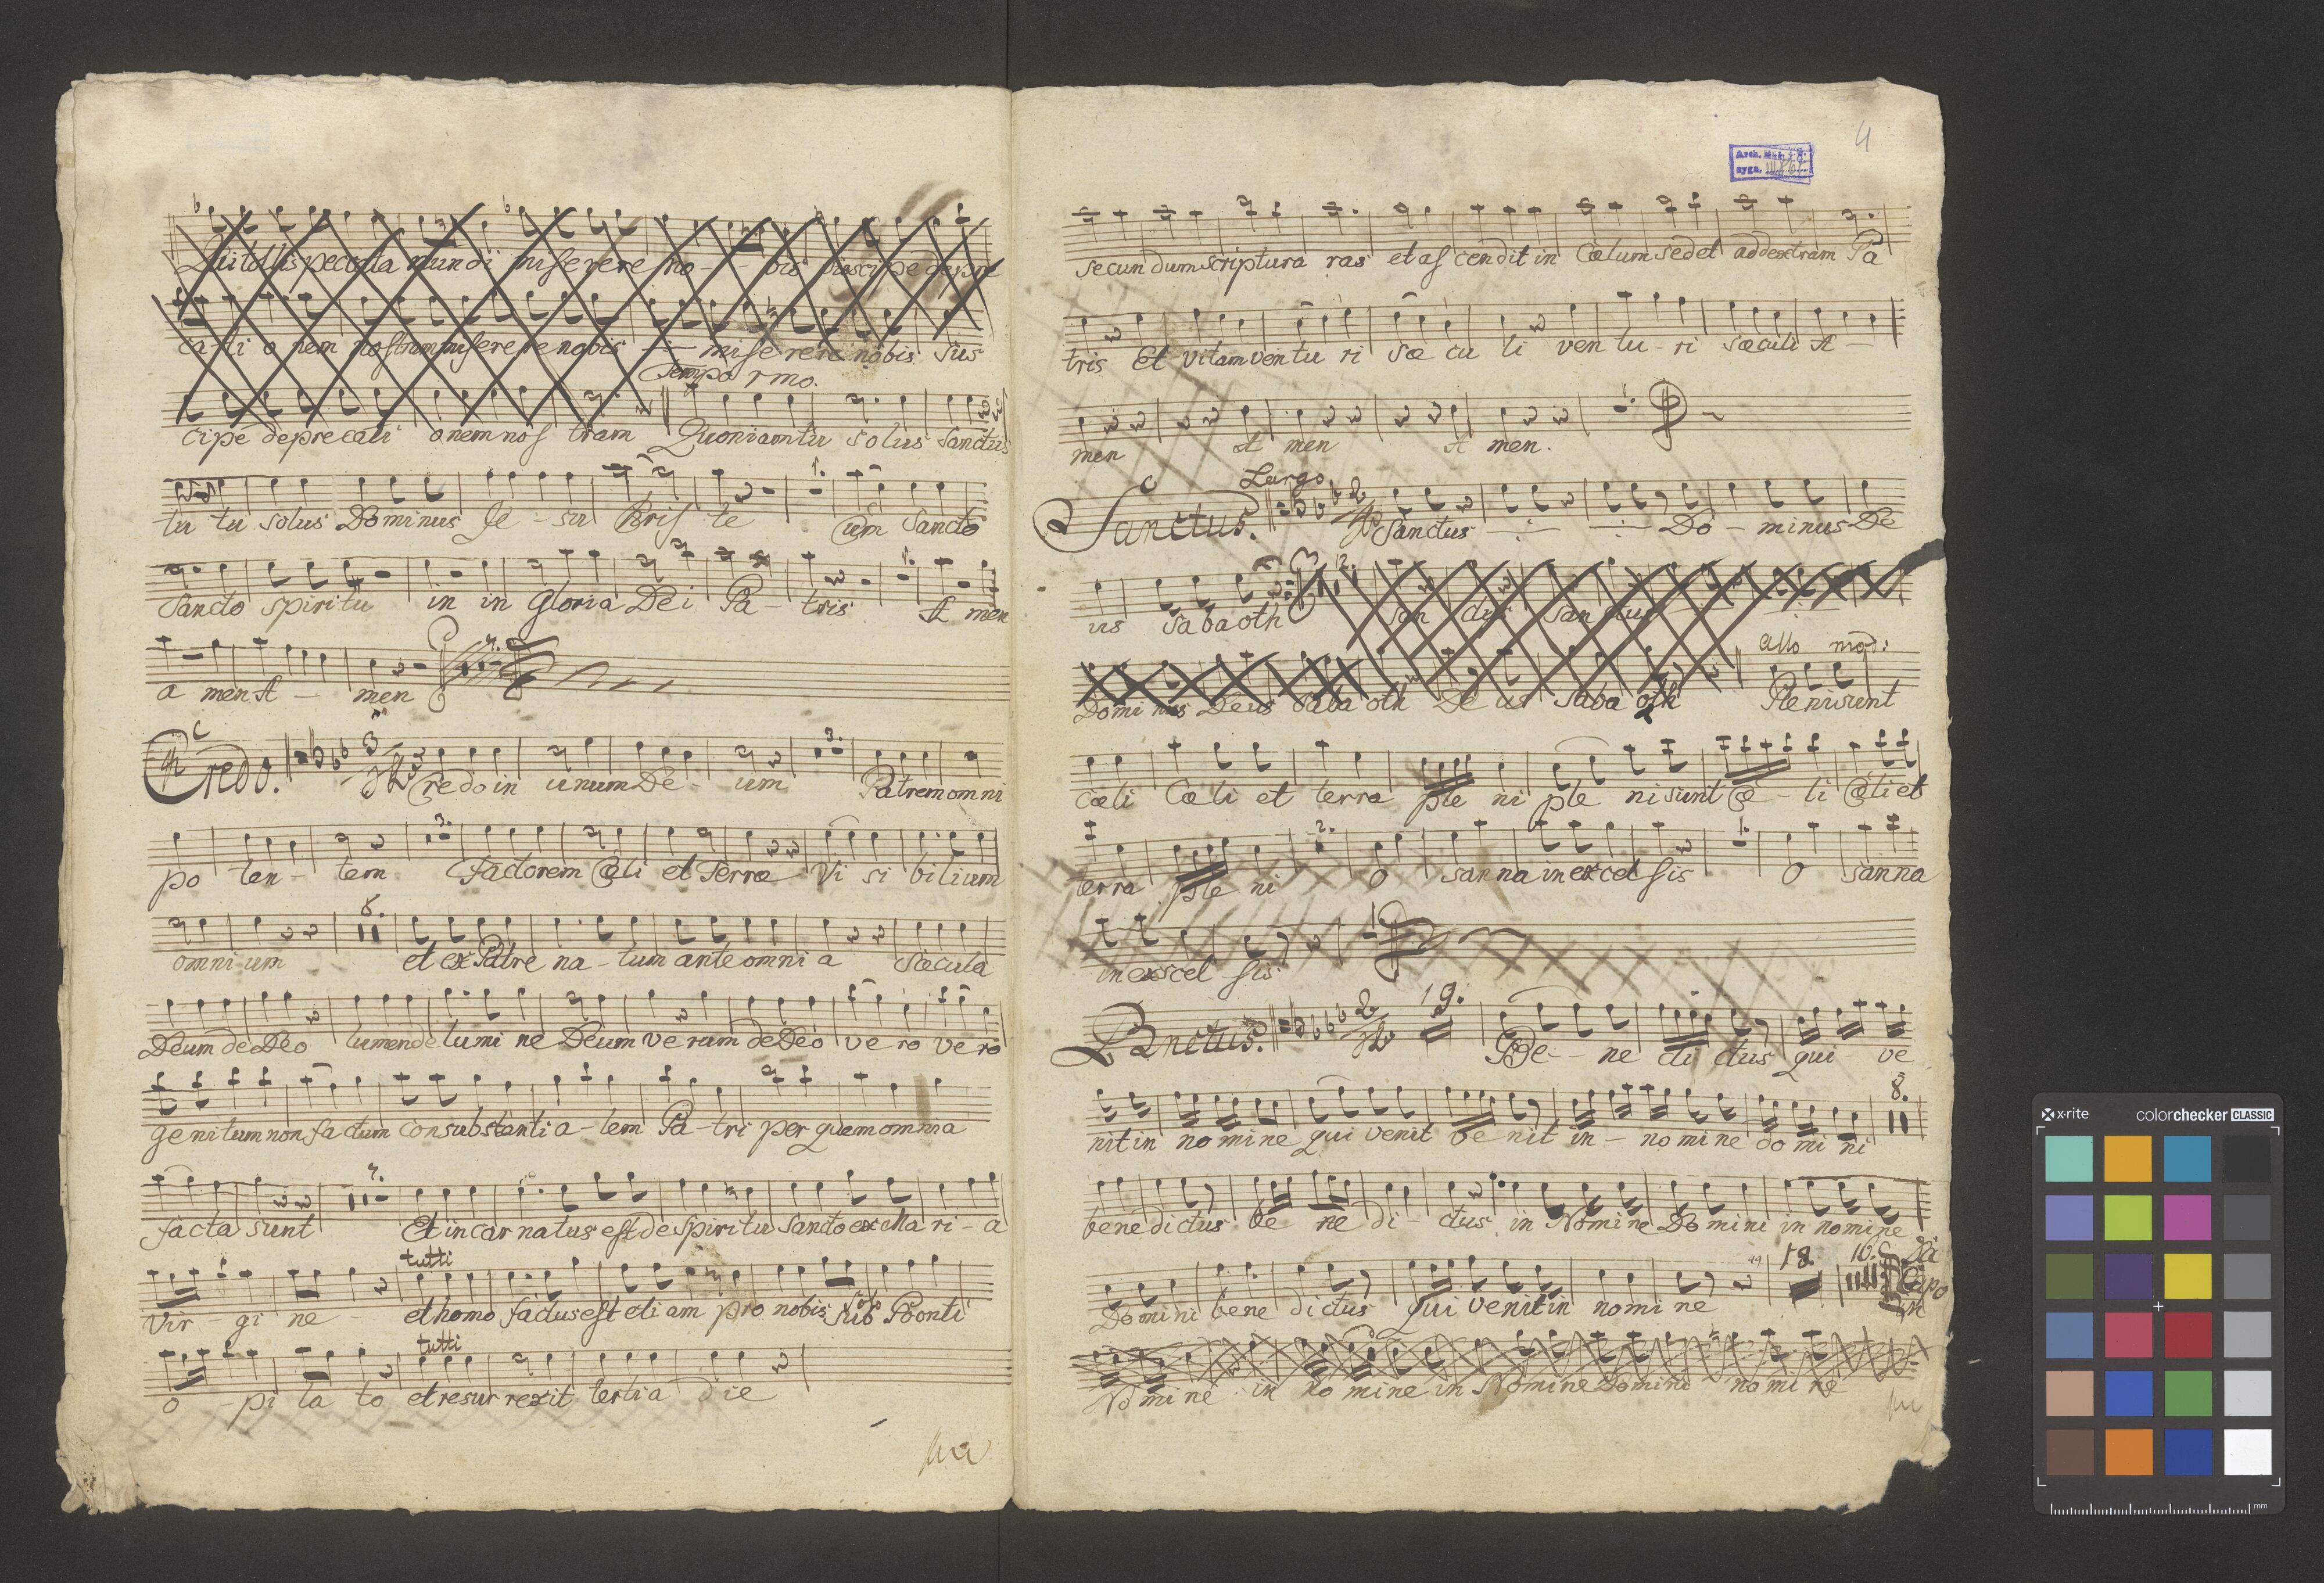 Qui tollis peccata mundi miserere no - bis suscipe depre
ca-ti o nem nostram miserere nobis miserere nobis sus
Tempo 1mo.
cipe deprecati onem nos tram Quoniam tu solus Sanctus
tu tu solus Dominus Je - su Kris te Cum Sancto
1.
Sancto spiritu in in Gloria Dei Pa - tris A men
1.
a men A - men
Credo. Credo in unum De - um Patrem omni
3.
po ten - tem Factorem Cæli et Terræ Vi si bilium
3.
omni um et ex Patre na - tum ante omni a sæcula
8.
Deum de Deo lumen de lumi ne Deum verum de Deo ve ro ve ro
genitum non factum consubstanti a - lem Pa - tri per quem omnia
facta sunt Et incarnatus est de Spiritu Sancto ex Ma ri - a
tutti
Vir - gi ne - et homo factus est eti am pro nobis sub Ponti
Solo
tutti
o - pi la to et resur rexit tertia die
4
Arch. Muz.
sygn.
secundum scriptura ras et as cendit in Cœlum sedet ad dextram Pa
tris Et vitam ven tu ri sæ cu li ven tu - ri sæculi A -
1.
men A men A men.
Largo
Sanctus. Sanctus Do - minus De
2.
us Sabaoth San ctus Sanctus
allo mod:
Domi nus Deus Saba oth De us Saba oth Pleni sunt
cœli Cœli et terra ple ni ple ni sunt Cœ - li Cœli et
2. 1.
terra ple ni O sanna in excel sis O sanna
1.
in excel sis
Bnctus. 19. Be - ne di ctus qui ve
8.
nit in nomine qui venit ve nit in - no mi ne do mi ni
benedictus be ne di - ctus in Nomine Domini in nomine
18. 16. Da
Capo
Domini bene dictus qui venit in nomi ne
Nomine in no mine in Nomine Domini nomi ne